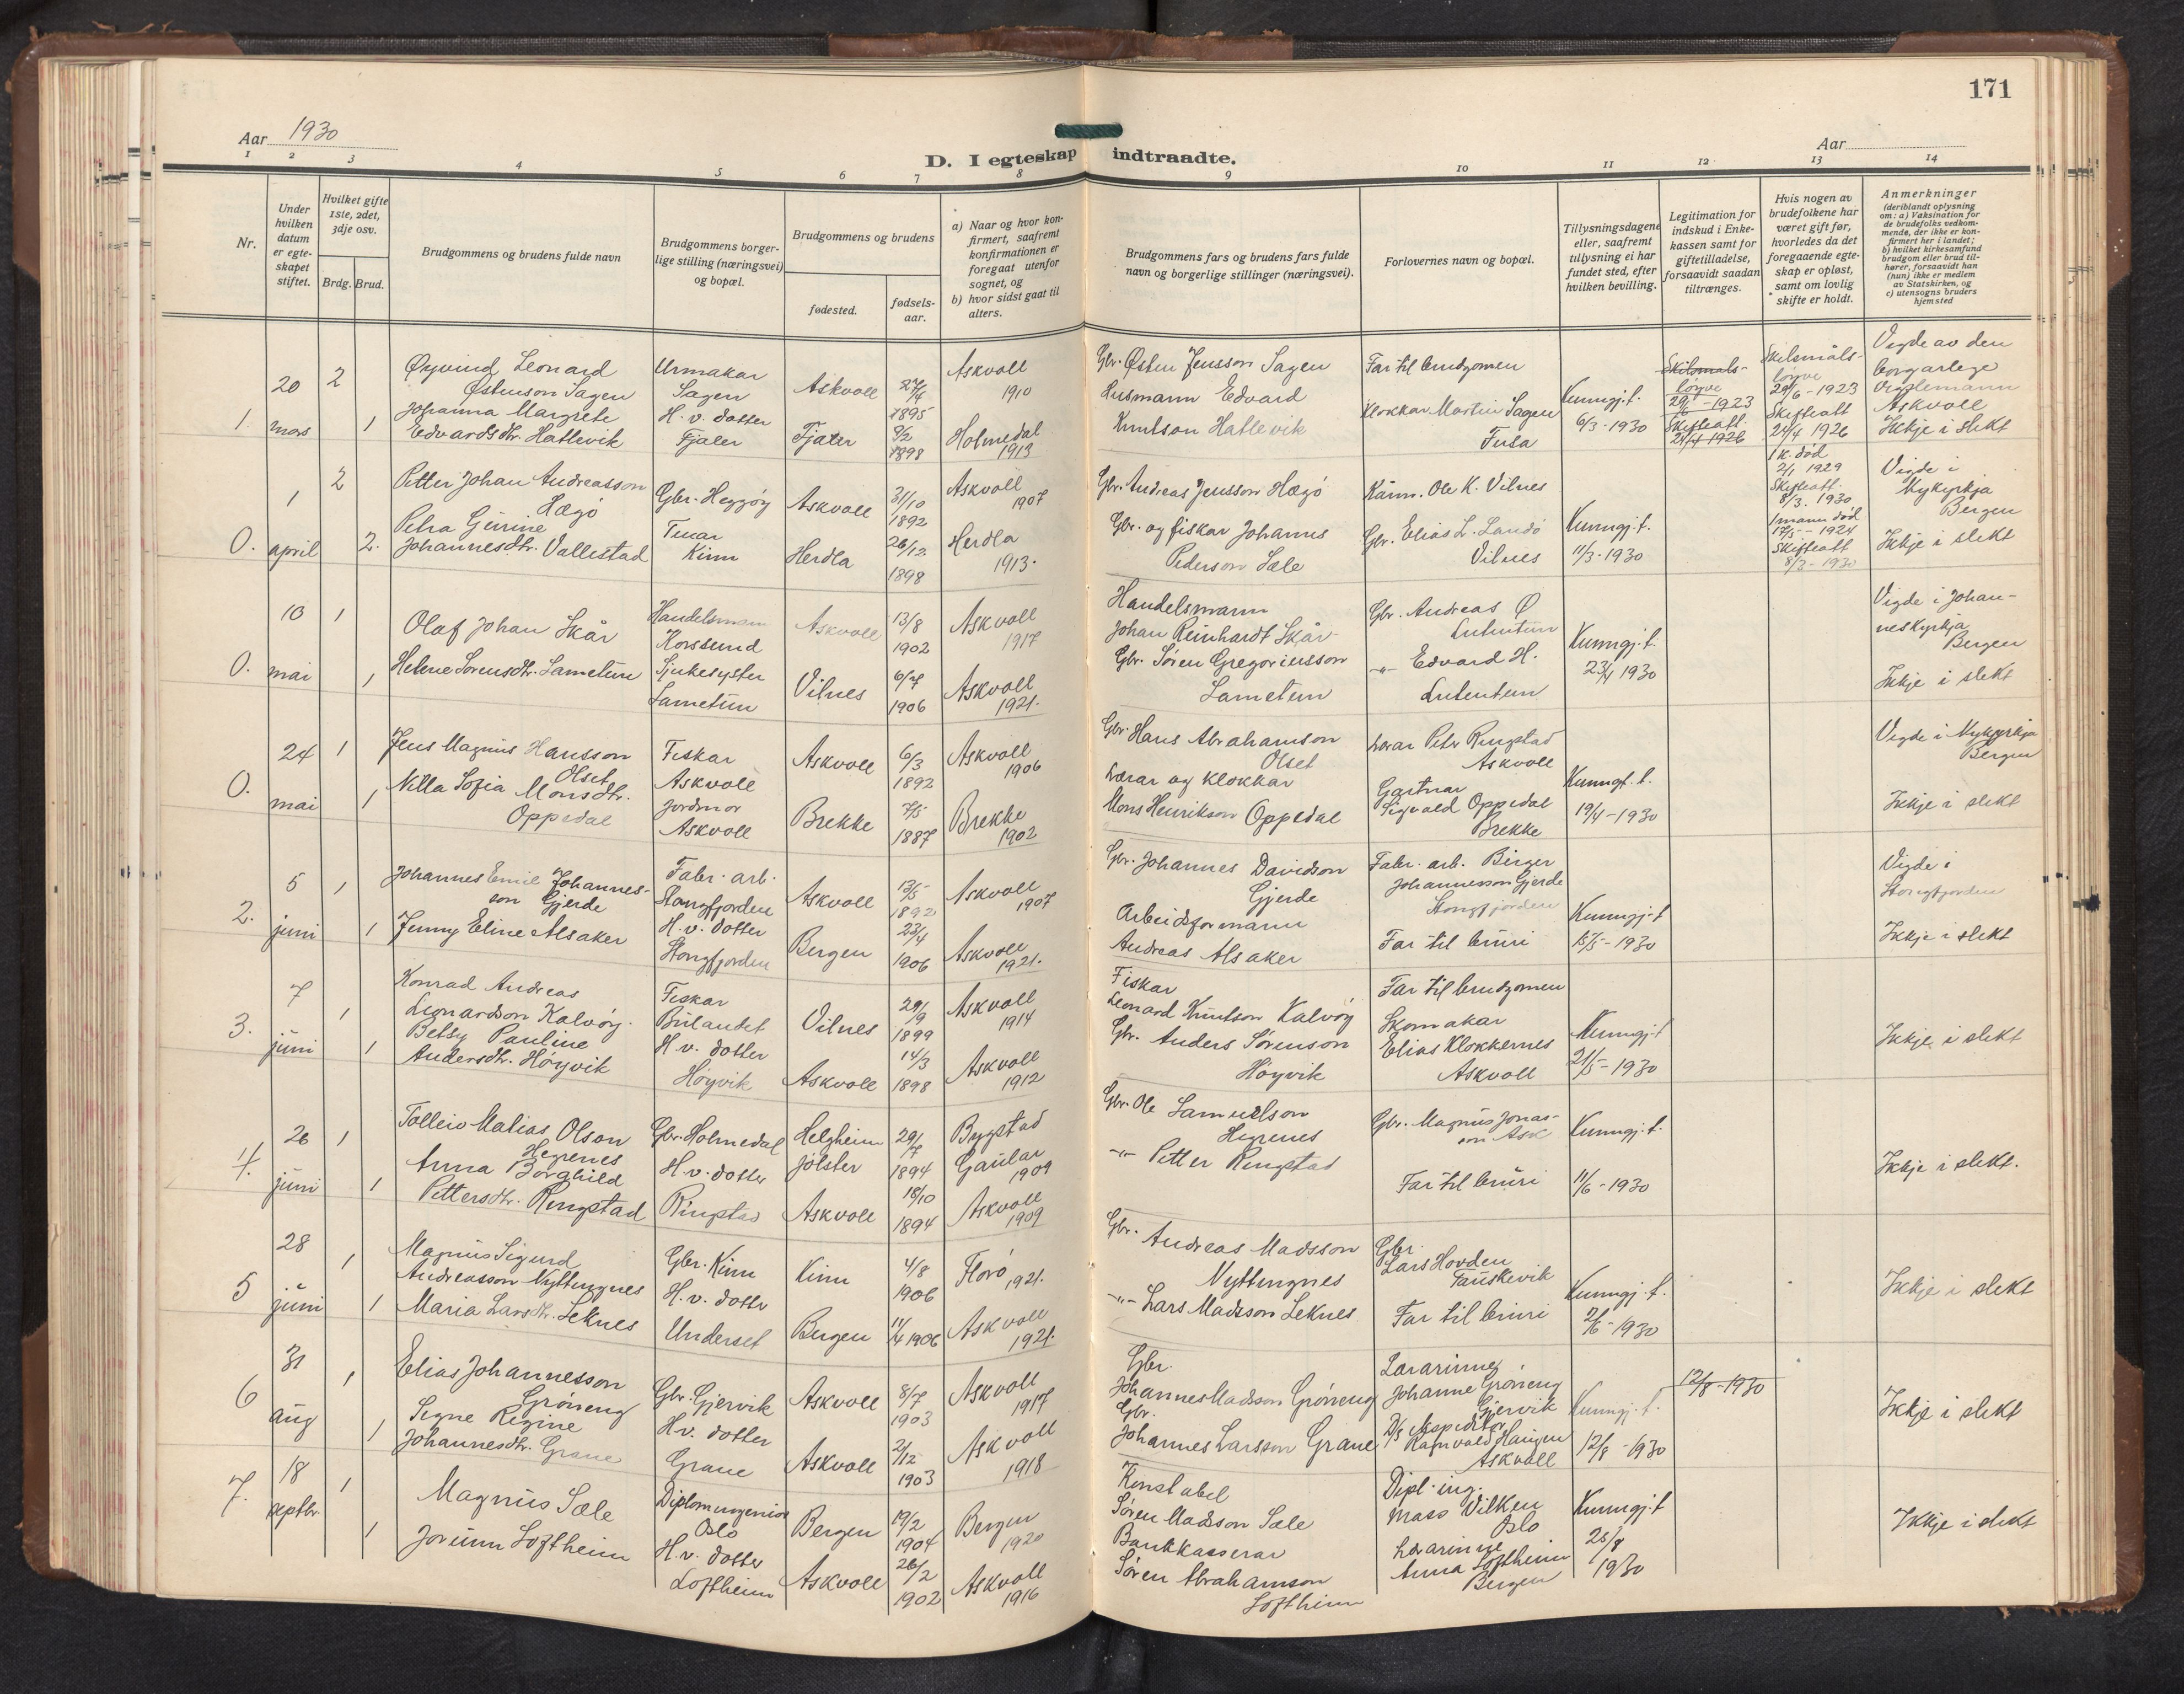 171
Aar 1930
Aar
D. I egteskap indtraadte.
1 2 3 4 5 6 7 8 9 10 11 12 13 14
Nr.
Under hvilken datum er egte- skapet stiftet.
Hvilket gifte 1ste, 2det, 3dje osv.
Brdg. Brud.
Brudgommens og brudens fulde navn
Brudgommens borger- lige stilling (næringsvei) og bopæl.
Brudgommens og brudens
fødested.
fødsels- aar.
a) Naar og hvor kon- firmert, saafremt konfirmationen er foregaat utenfor sognet, og
b) hvor sidst gaat til alters.
Brudgommens fars og brudens fars fulde navn og borgerlige stillinger (næringsvei).
Forlovernes navn og bopæl.
Tillysningsdagene eller, saafremt tillysning ei har fundet sted, efter hvilken bevilling.
Legitimation for indskud i Enke- kassen samt for giftetilladelse, forsaavidt saadan tiltrænges.
Hvis nogen av brudefolkene har været gift før, hvorledes da det foregaaende egte- skap er opløst, samt om lovlig skifte er holdt.
Anmerkninger
(deriblandt oplysning om: a) Vaksination for de brudefolks vedkom- mende, der ikke er kon- firmert her i landet; b) hvilket kirkesamfund brudgom eller brud til- hører, forsaavidt han (hun) ikke er medlem av Statskirken, og c) utensogns bruders hjemsted
1 20 mars 2 1
Øyvind Leonard Østenson Sagen
Johanna Margrete Edvardsdtr. Hatlevik
Urmakar Sagen
H. v. dotter Fjaler
Askvoll 27/4 1895 Askvoll 1910
Fjaler 9/2 1898 Holmedal 1913
Gbr. Østen Jensson Sagen
Husmann Edvard Knutson Hatlevik
Far til brudgomen
Klokkar Martin Sagen Fure
Kunngj. f. 6/3-1930
Skilsmåls- løyve 29/6-1923 Skifteatt. 24/4 1926
Skilsmåls- løyve 29/6-1923 Skifteatt 24/4 1926
Vigde av den borgarlege Askvoll
Ikkje i slekt
0. 1 april 2 2.
Petter Johan Andreasson Hægø
Petra Gurine Johannesdtr. Vallestad
Gbr. Heggøy
Kinn
Askvoll 31/10 1892 Askvoll 1907
Herdla 26/12 1898 Herdla 1913.
Gbr. Andreas Jensson Hægö
Gbr. og fiskar Johannes Pederson Sæle
Ole K. Vilnes
Gbr. Elias L. Landö Vilnes
Kunngj. f. 11/3-1930
1 k. död 2/1 1929 Skifteatt. 8/3. 1930
1 mann död 17/5-1924 Skifteatt 8/3-1930
Vigde i Nykyrkja Bergen
Ikkje i slekt
0. 10 mai 1 1
Olaf Johan Skår
Helene Sørensdtr. Lametun
Handelsmann Korssund
Sjukesyster Lametun
Askvoll 13/8 1902 Askvoll 1917
Vilnes 6/7 1906 Askvoll 1921.
Handelsmann Johan Reinhardt Skår
Gbr. Søren Gregoriusson Lametun
Gbr. Andreas Ø Lutentun
-"- Edvard H. Lutentun
Kunngj. f. 23/4 1930
Vigde i Johan- neskyrkja Bergen
Ikkje i slekt
0. 24 mai 1 1
Jens Magnus Hansson Olset
Nilla Sofia Monsdtr. Oppedal
Fiskar Askvoll
Jordmor Askvoll
Askvoll 6/3 1892 Askvoll 1906
Brekke 7/5 1887 Brekke 1902
Gbr. Hans Abrahamson Olset
Lærar og klokkar Mons Henrikson Oppedal
Lærar Peter Ringstad Askvoll
Gartnar Sigvald Oppedal Brekke
Kunngj. f. 19/4-1930
Vigde i Nykyrkja Bergen
Ikkje i slekt
2. 5 juni 1 1
Johannes Emil Johannes- son Gjerde
Jenny Eline Alsaker
Fabr. arb. Stongfjorden
H. v. dotter Stongfjorden
Askvoll 13/5 1892 Askvoll 1907
Bergen 23/4 1906 Askvoll 1921.
Gbr. Johannes Davidson Gjerde
Arbeidsformann Andreas Alsaker
Fabr. arb. Birger Johannesson Gjerde Stongfjorden
Far til bruri
Kunngj. f. 15/5-1930
Vigde i Stongfjorden
Ikkje i slekt
3. 7 juni 1 1
Konrad Andreas Leonardson Kalvöy.
Betsy Pauline Andersdtr. Höyvik
Fiskar Bulandet
H. v. dotter Höyvik
Vilnes 29/9 1899 Askvoll 1914
Askvoll 14/3 1898 Askvoll 1912
Fiskar Leonard Knutson Kalvöy
Gbr. Anders Sörenson Höyvik
Far til brudgomen
Skomakar Elias Klokkernes Askvoll
Kunngj. f. 21/5-1930
Ikkje i slekt
4. 26 juni 1 1
Tolleiv Matias Olson Hegrenes
Anna Borghild Pettersdtr. Ringstad
Gbr. Holmedal
H. v. dotter Ringstad
Helgheim Jölster 29/7 1894 Bygstad Gaular 1909
Askvoll 18/10 1894 Askvoll 1909
Gbr. Ole Samuelson Hegrenes
-"- Petter Ringstad
Gbr. Magnus Jonas- son Ask
Far til bruri
Kunngj. f. 11/6-1930
Ikkje i slekt.
5 28 juni 1 1
Magnus Sigurd Andreasson Nyttingnes
Maria Larsdtr. Leknes
Gbr. Kinn
H. v. dotter Underset
Kinn 4/8 1906 Florö 1921.
Bergen 11/4 1906 Askvoll 1921.
Gbr. Andreas Madsson Nyttingnes
-"- Lars Madsson Leknes
Gbr. Lars Hovden Tauskevik
Far til bruri
Kunngj. f. 2/6-1930
Ikkje i slekt
6 31 aug 1 1
Elias Johannesson Gröneng
Signe Regine Johannesdtr. Grane
Gbr. Gjervik
H. v. dotter Grane
Askvoll 8/7 1903 Askvoll 1917
Askvoll 2/12 1903 Askvoll 1918
Gbr. Johannes Madsson Gröneng
Gbr. Johannes Larsson Grane
Lærarinne Johanne Gröneng Gjervik
D/s ekspeditör Ragnvald Haugen Askvoll
Kunngj. f. 12/8-1930
12/8-1930
Ikkje i slekt
7. 18 septbr. 1 1
Magnus Sæle
Jorunn Loftheim
Diplomingeniör Oslo
H. v. dotter Loftheim
Bergen 19/2 1904 Bergen 1920
Askvoll 26/2 1902 Askvoll 1916
Konstabel Sören Madsson Sæle
Bankkasserar Sören Abrahamson Loftheim
Dipl. ing. Mass Vilken Oslo
Lærarinne Anna Loftheim Bergen
Kunngj. f 28/8 1930
Ikkje i slekt